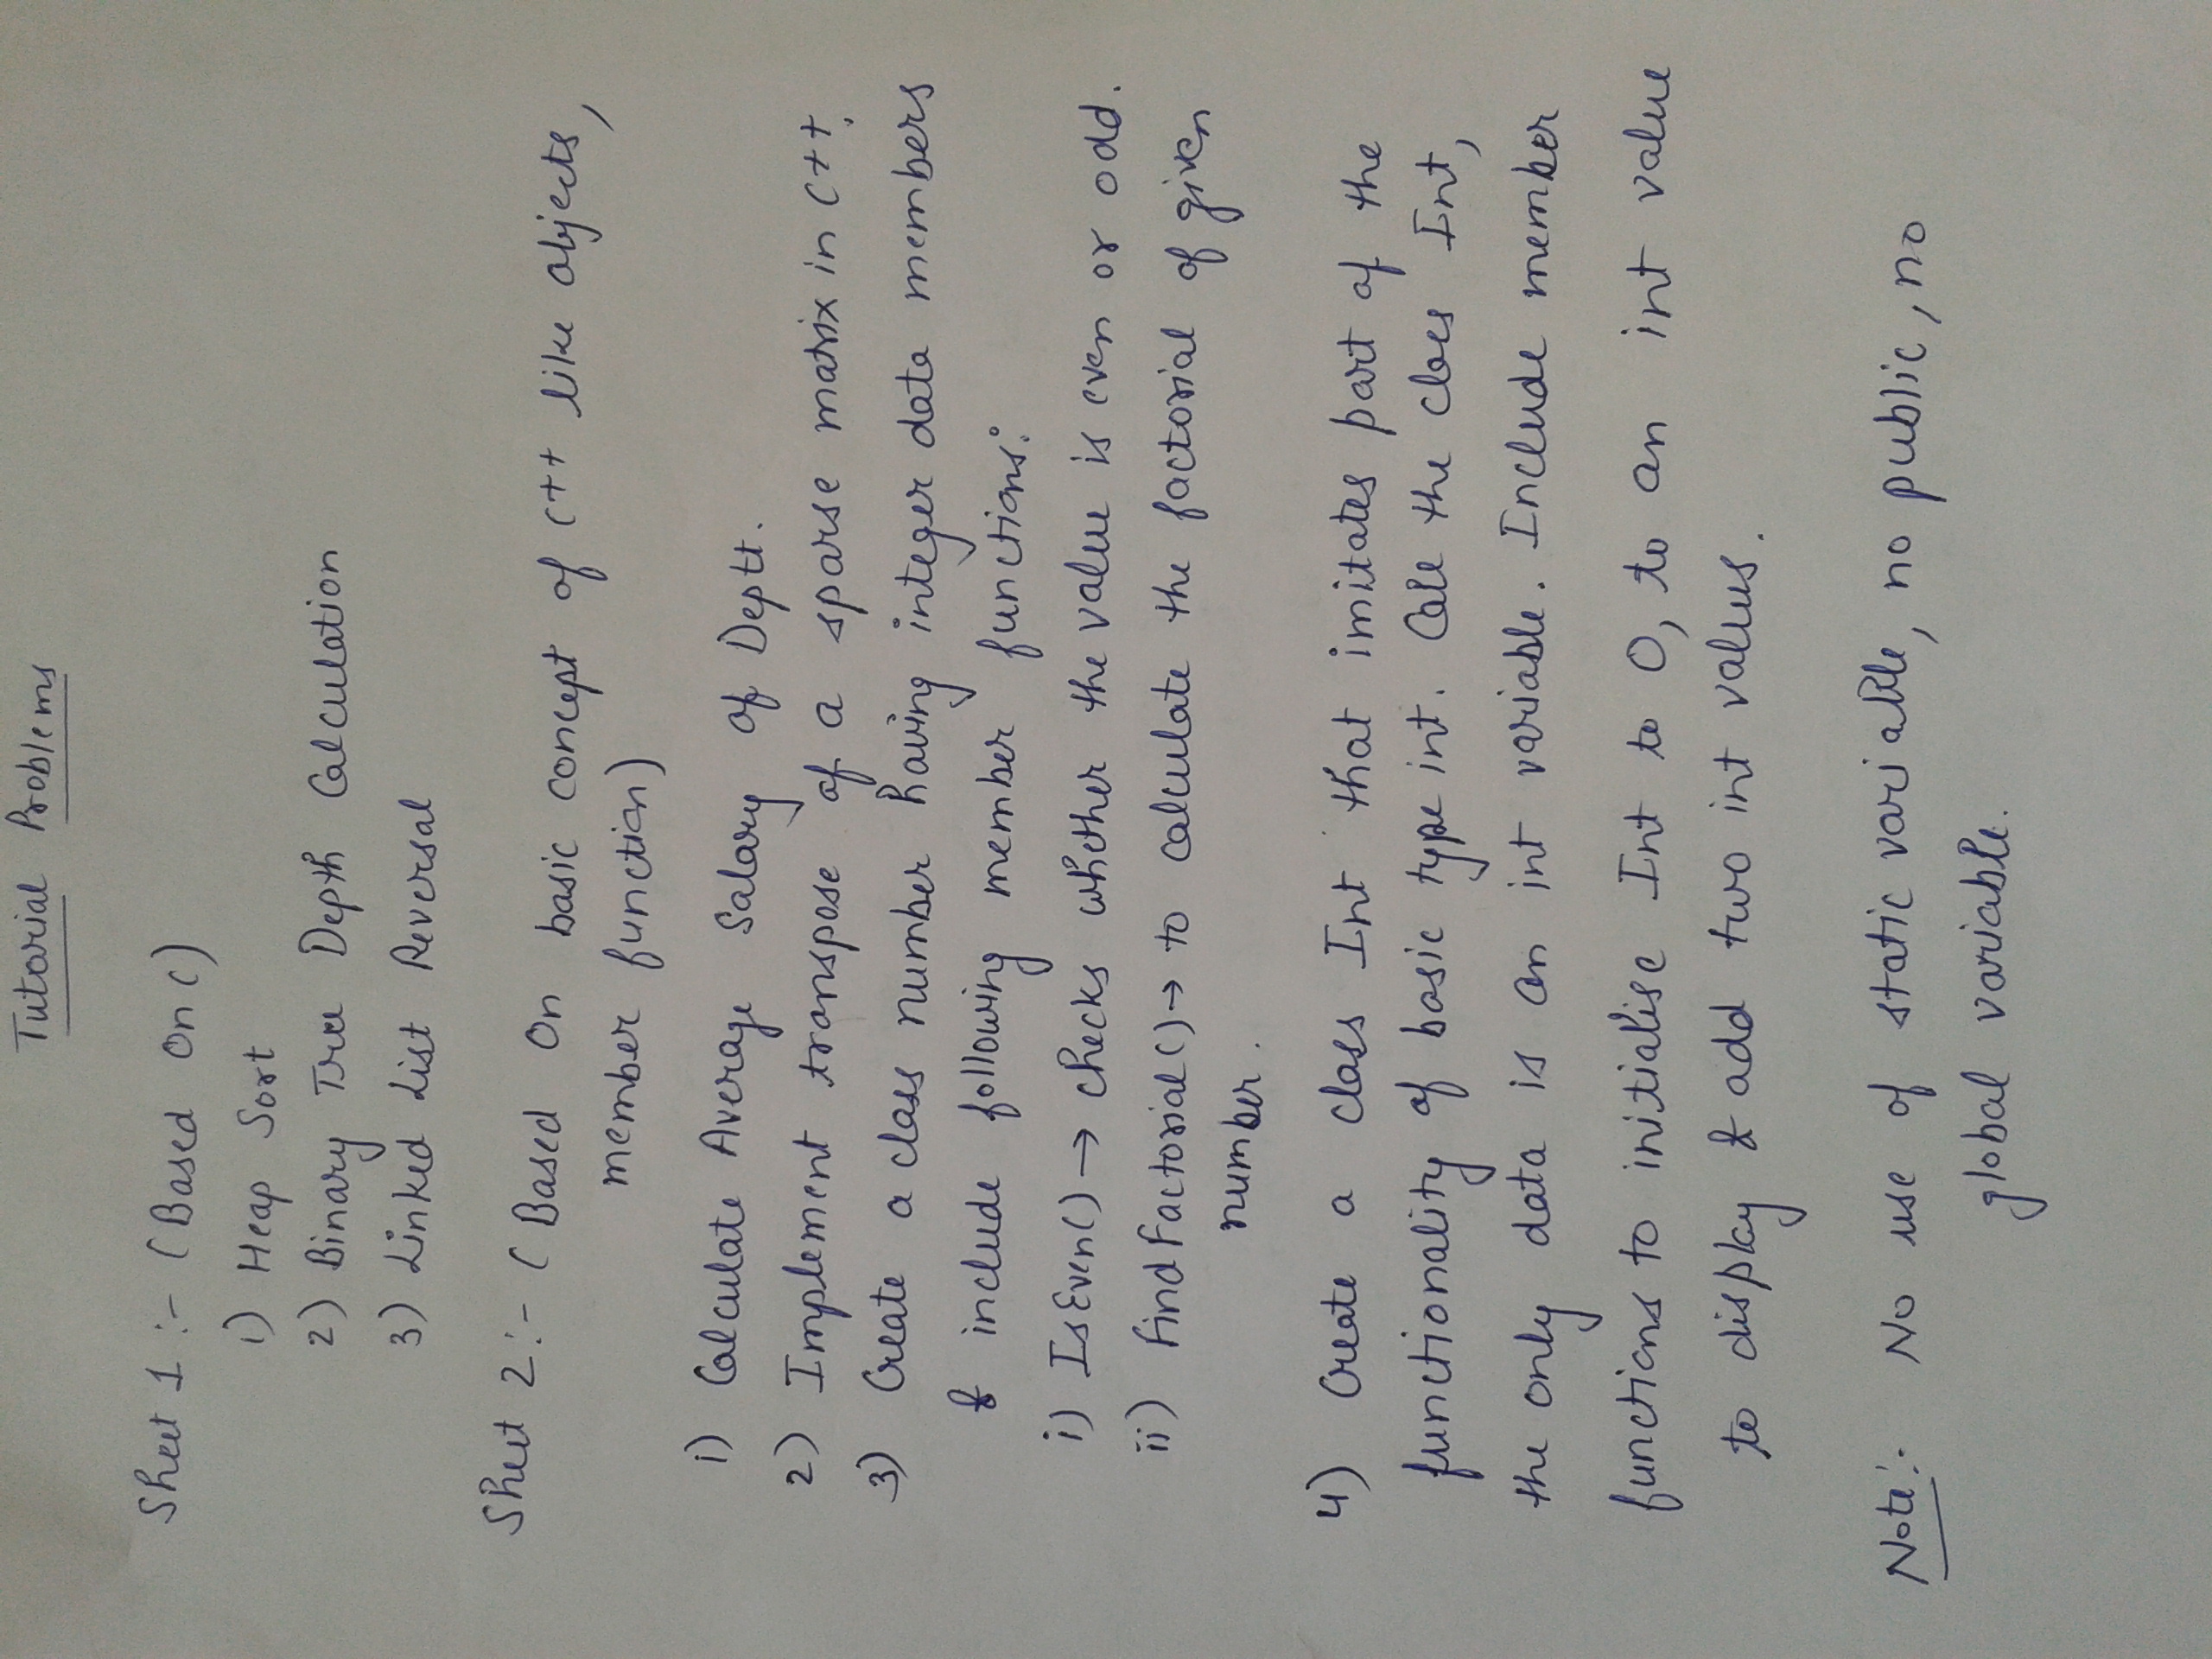 Tutorial Problems
Sheet 1 :- (Based on C)
1) Heap Sort
2) Binary Tree Depth Calculation
3) Linked List Reversal
Sheet 2 :- (Based on basic concept of C++ like objects,
member function)
1) Calculate Average Salary of Deptt.
2) Implement transpose of a sparse matrix in C++.
3) Create a class number having integer data members
& include following member functions:
i) IsEven() → checks whether the value is even or odd.
ii) findfactorial() → to calculate the factorial of given
number.
4) Create a class Int that imitates part of the
functionality of basic type int. Call the class Int,
the only data is an int variable. Include member
functions to initialise Int to 0, to an int value
to display & add two int values.
Note:- No use of static variable, no public, no
global variable.